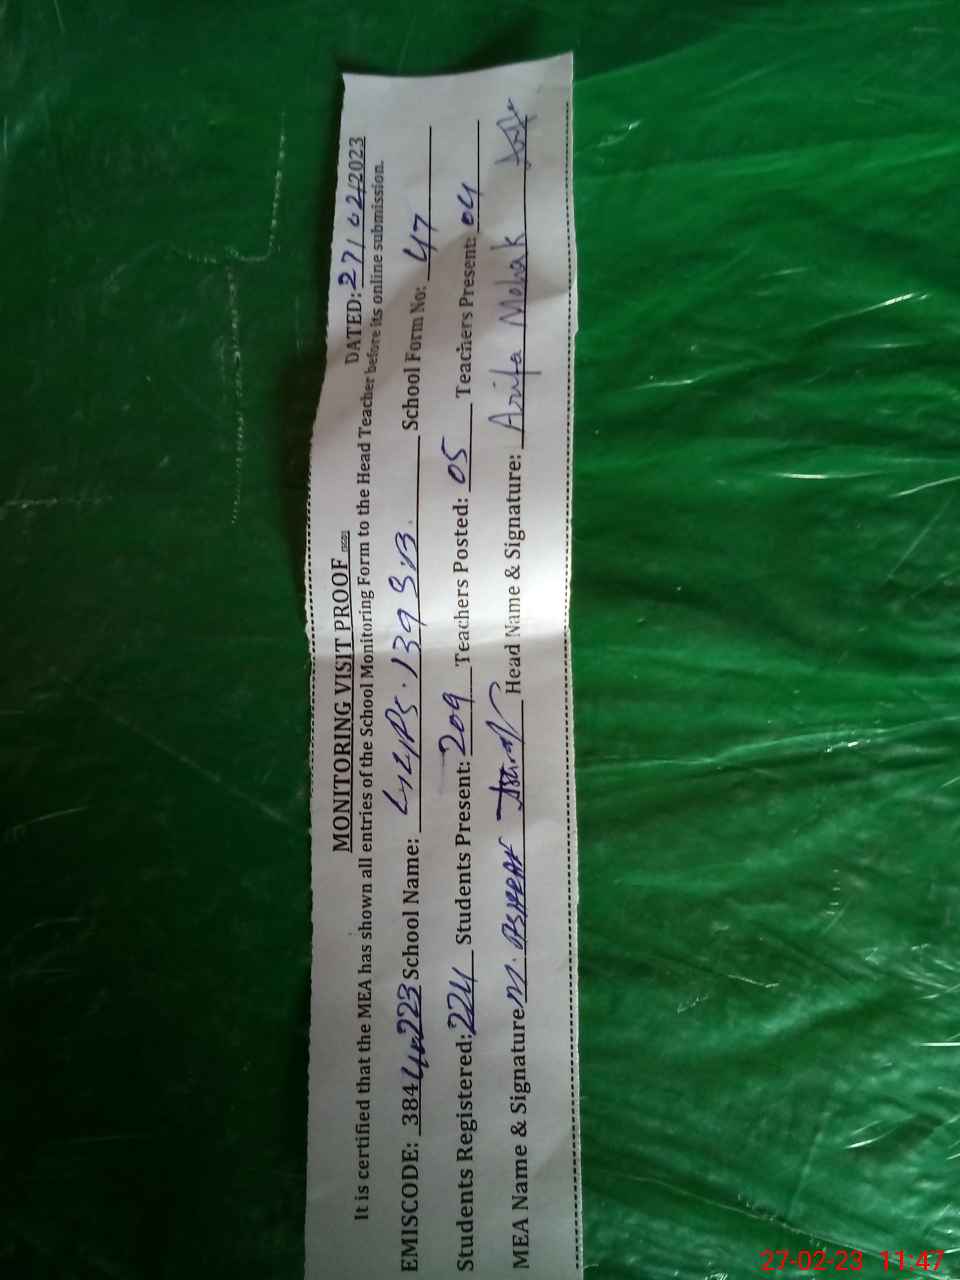 MONITORING VISIT PROOF
DATED: 27/02/2023
It is certified that the MEA has shown all entries of the School Monitoring Form to the Head Teacher before its online submission.
EMISCODE: 384 School Name: 139 School Form No: 47
Students Registered: 224 Students Present: 209 Teachers Posted: 05 Teachers Present: 04
MEA Name & Signature M. Head Name & Signature: Arifa
27-02-23 11:47